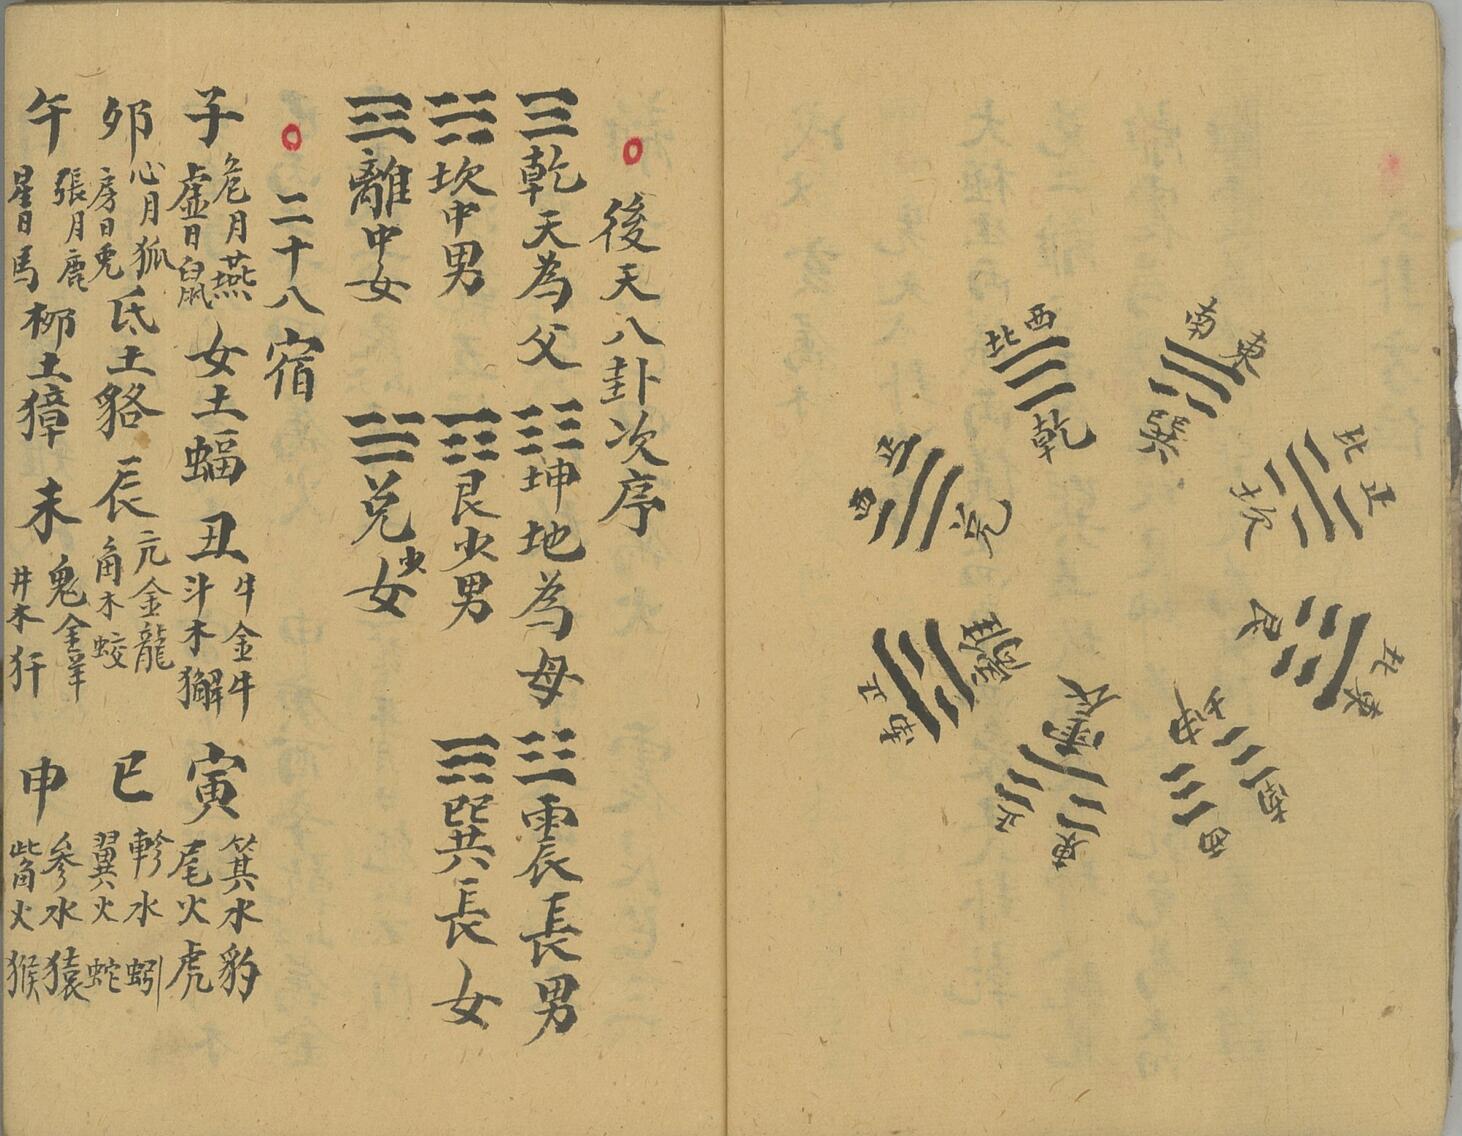 南
東
巽
西
北
乾
北
正
坎
正
西
兌
艮
北
東
離
正
南
震
正
東
坤
南
西
後天八卦次序
乾天為父 坤地為母 震長男
坎中男 艮少男 巽長女
離中女 兌少女
二十八宿
子 危月燕 虛日鼠 女土蝠 丑 牛金牛 斗木獬 寅 箕水豹 尾火虎
卯 心月狐 房日兔 氐土貉 辰 亢金龍 角木蛟 巳 軫水蚓 翼火蛇
午 張月鹿 星日馬 柳土獐 未 鬼金羊 井木犴 申 參水猿 觜火猴